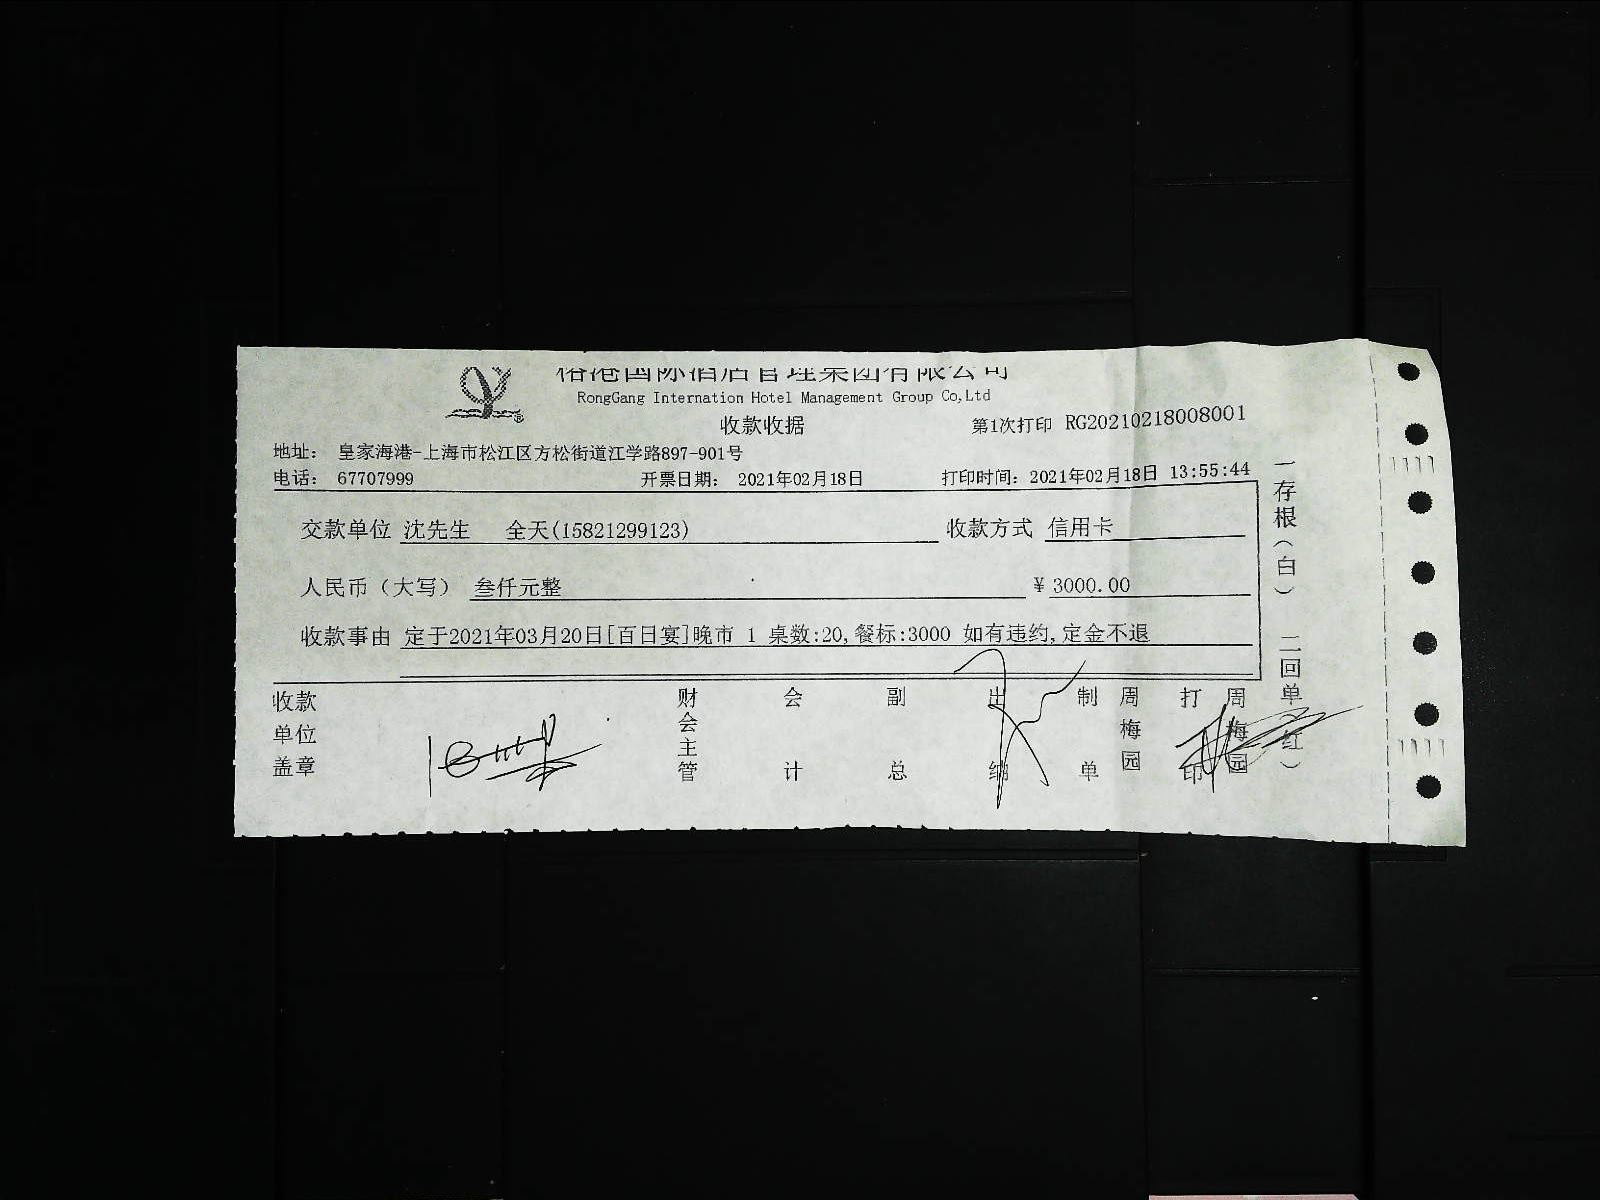 榕港国际酒店管理集团有限公司
RongGang Internation Hotel Management Group Co,Ltd
收款收据 第1次打印 RG20210218008001
地址： 皇家海港-上海市松江区方松街道江学路897-901号
电话： 67707999 开票日期： 2021年02月18日 打印时间：2021年02月18日 13:55:44
交款单位 沈先生 全天(15821299123) 收款方式 信用卡
人民币（大写） 叁仟元整 ¥ 3000.00
收款事由 定于2021年03月20日[百日宴]晚市 1 桌数:20,餐标:3000 如有违约,定金不退
收款单位盖章 财会主管 会计 副总 出纳 制单 周梅园 打印 周梅园
一存根（白） 二回单（红）